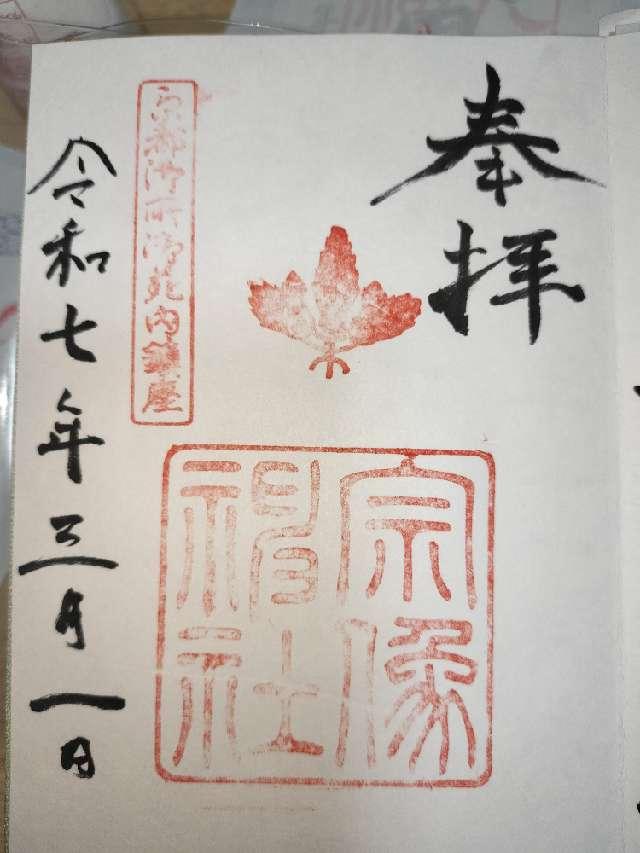 奉拝
宗像
神社
京都御所御苑内鎮座
令和七年三月一日